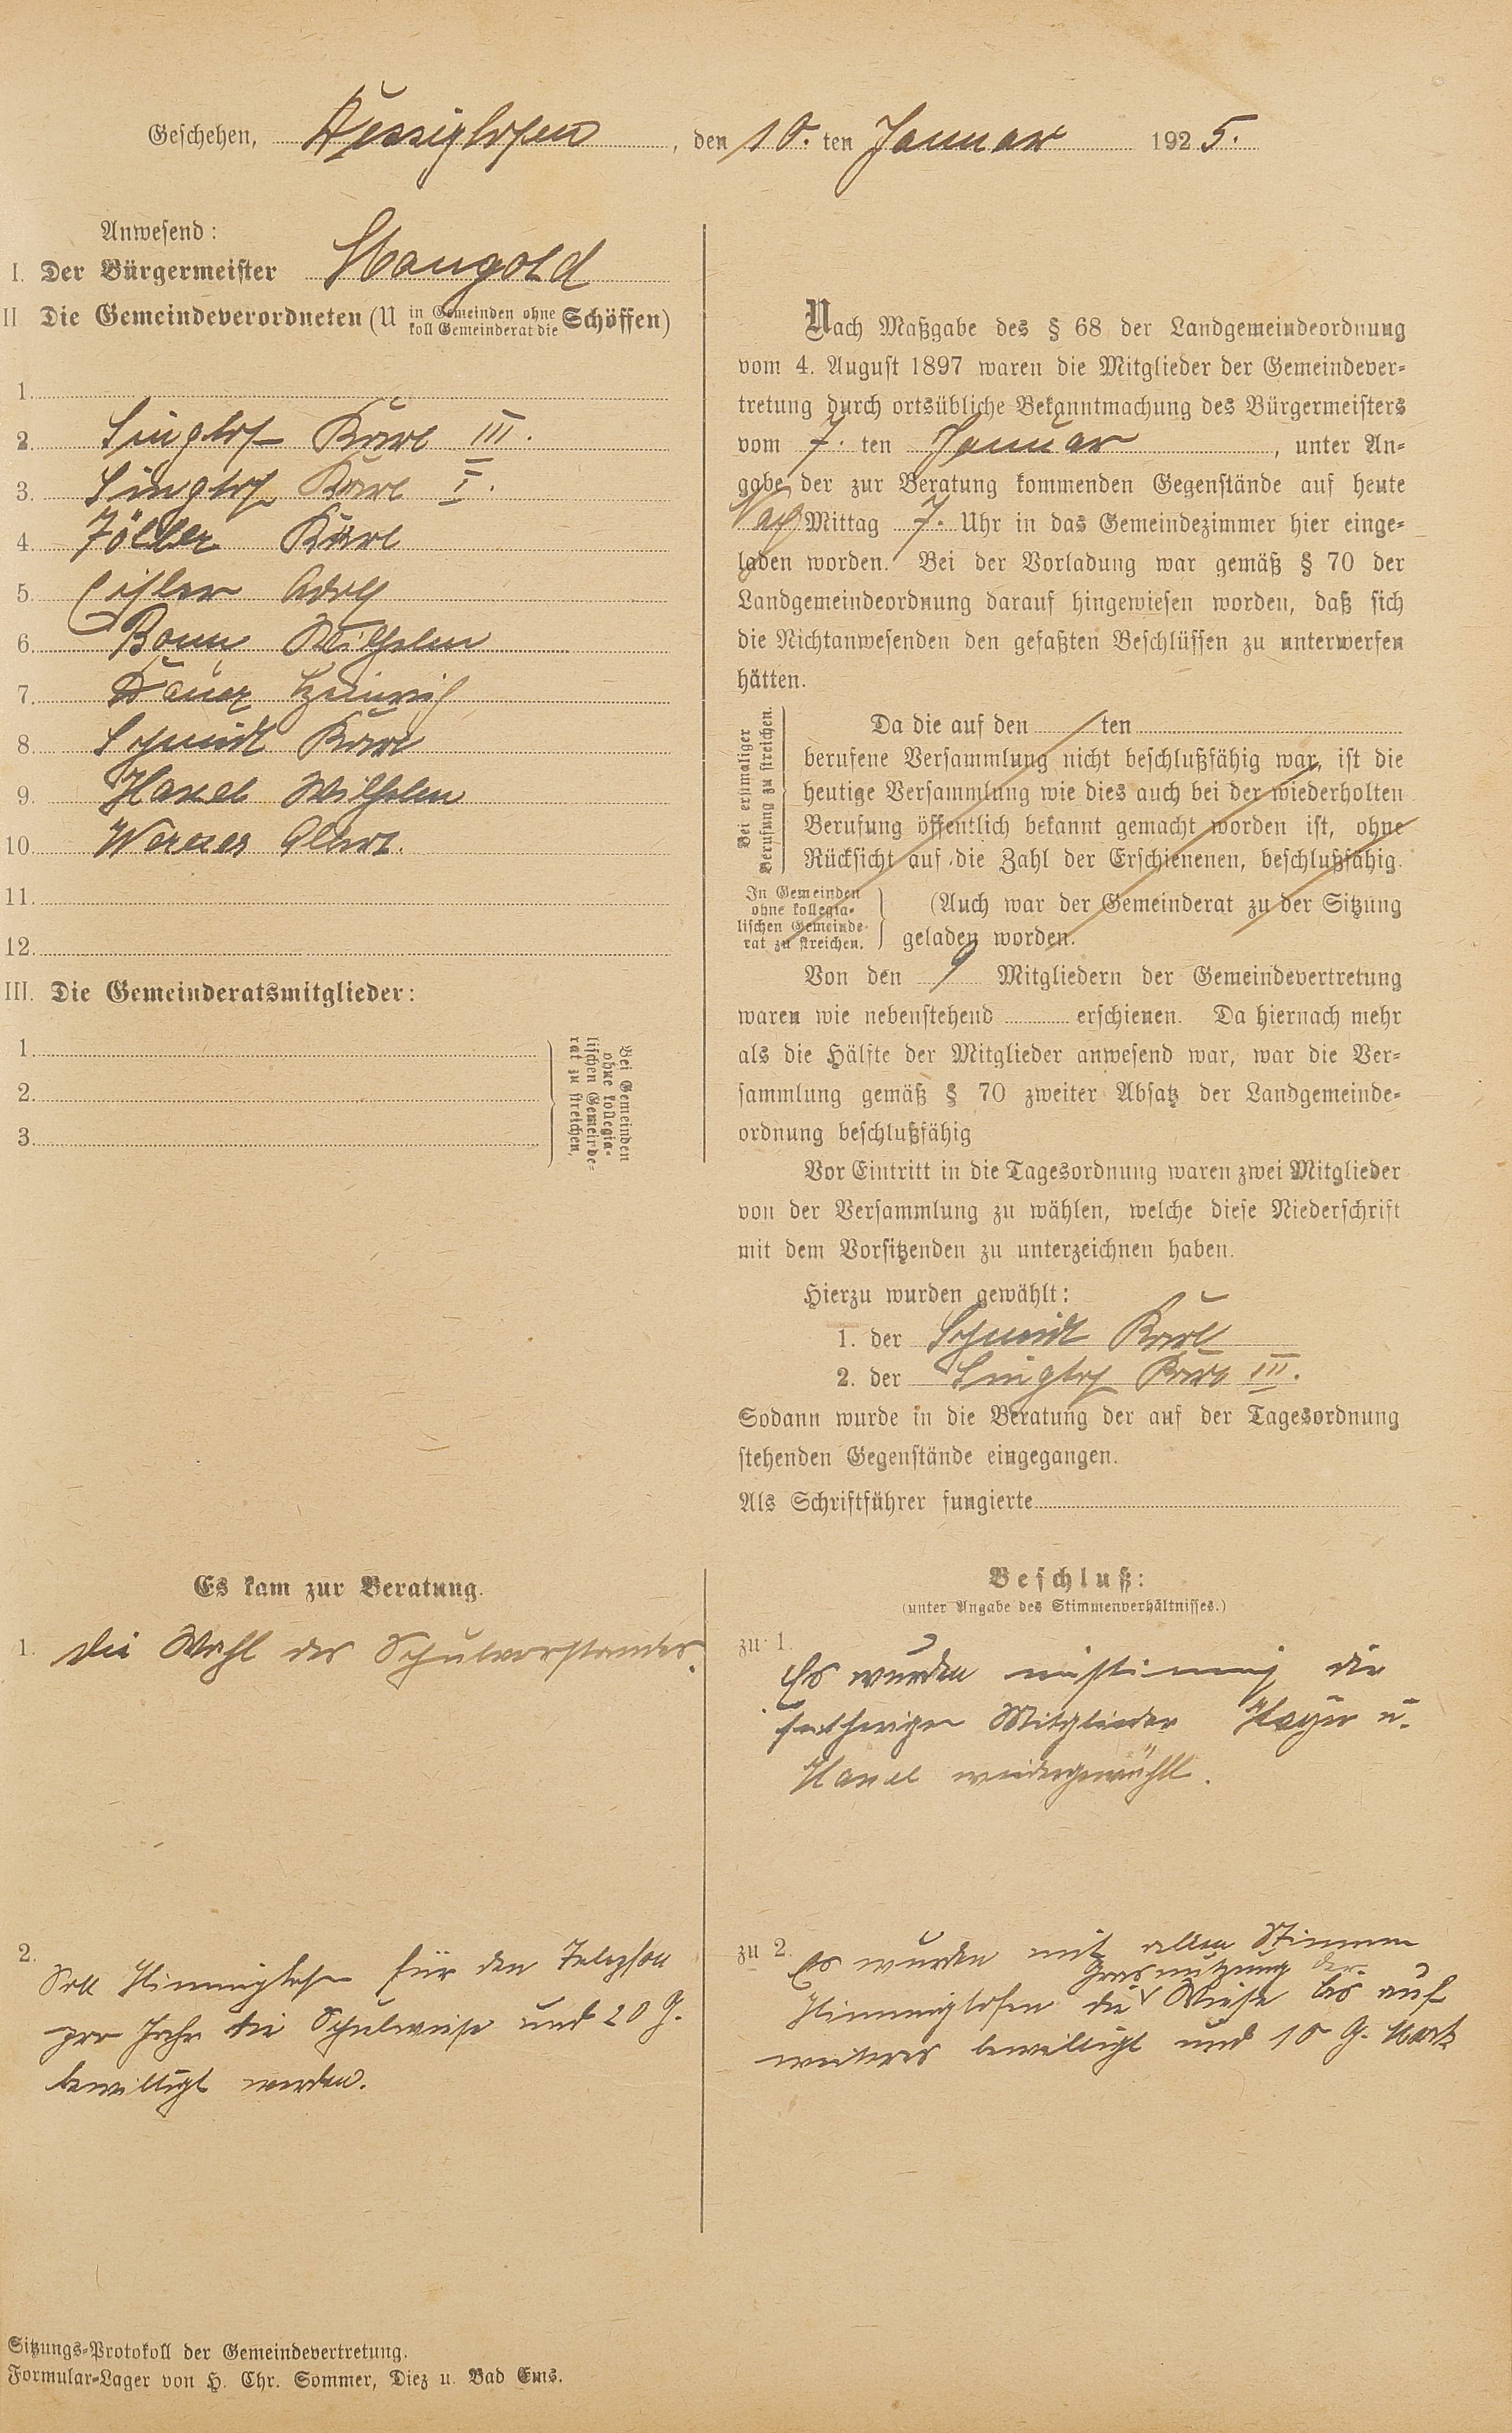 Geschehen, Kessighofen, den 10. ten Januar 1925.
Anwesend:
I. Der Bürgermeister Mangold
II Die Gemeindeverordneten (U in Gemeinden ohne koll Gemeinderat die Schöffen)
1.
2. Singhof Karl III.
3. Singhof Karl I.
4. Zöller Karl
5. Adolf
6. Bonn Wilhelm
7. Heinrich
8. Schmidt Karl
9. Hanel Wilhelm
10. Werner
11.
12.
III. Die Gemeinderatsmitglieder:
1.
2.
3.
Bei Gemeinden
ohne kollegia-
lischen Gemeinde-
rat zu streichen.
Nach Maßgabe des § 68 der Landgemeindeordnung
vom 4. August 1897 waren die Mitglieder der Gemeindever-
tretung durch ortsübliche Bekanntmachung des Bürgermeisters
vom 7. ten Januar, unter An-
gabe der zur Beratung kommenden Gegenstände auf heute
Nach Mittag 7. Uhr in das Gemeindezimmer hier einge-
laden worden. Bei der Vorladung war gemäß § 70 der
Landgemeindeordnung darauf hingewiesen worden, daß sich
die Nichtanwesenden den gefaßten Beschlüssen zu unterwerfen
hätten.
Bei erstmaliger
Berufung zu streichen.
Da die auf den ten
berufene Versammlung nicht beschlußfähig war, ist die
heutige Versammlung wie dies auch bei der wiederholten
Berufung öffentlich bekannt gemacht worden ist, ohne
Rücksicht auf die Zahl der Erschienenen, beschlußfähig.
In Gemeinden
ohne kollegia-
lischen Gemeinde-
rat zu streichen.
(Auch war der Gemeinderat zu der Sitzung
geladen worden.
Von den 9 Mitgliedern der Gemeindevertretung
waren wie nebenstehend erschienen. Da hiernach mehr
als die Hälfte der Mitglieder anwesend war, war die Ver-
sammlung gemäß § 70 zweiter Absatz der Landgemeinde-
ordnung beschlußfähig
Vor Eintritt in die Tagesordnung waren zwei Mitglieder
von der Versammlung zu wählen, welche diese Niederschrift
mit dem Vorsitzenden zu unterzeichnen haben.
Hierzu wurden gewählt:
1. der Schmidt Karl
2. der Singhof Karl III.
Sodann wurde in die Beratung der auf der Tagesordnung
stehenden Gegenstände eingegangen.
Als Schriftführer fungierte
Es kam zur Beratung.
1. Die Wahl des Schulvorstandes.
2. Soll Himmighofen für den Telephon
pro Jahr die Schulwiese und 20 G.
bewilligt werden.
Beschluß:
(unter Angabe des Stimmenverhältnisses.)
zu 1.
Es wurden einstimmig die
seitherigen Mitglieder u.
Hanel wiedergewählt.
zu 2. Es wurden mit allen Stimmen
Grasnutzung der
Himmighofen die Wiese bis auf
weiteres bewilligt und 10 G. Mark
Sitzungs-Protokoll der Gemeindevertretung.
Formular-Lager von H. Chr. Sommer, Diez u. Bad Ems.